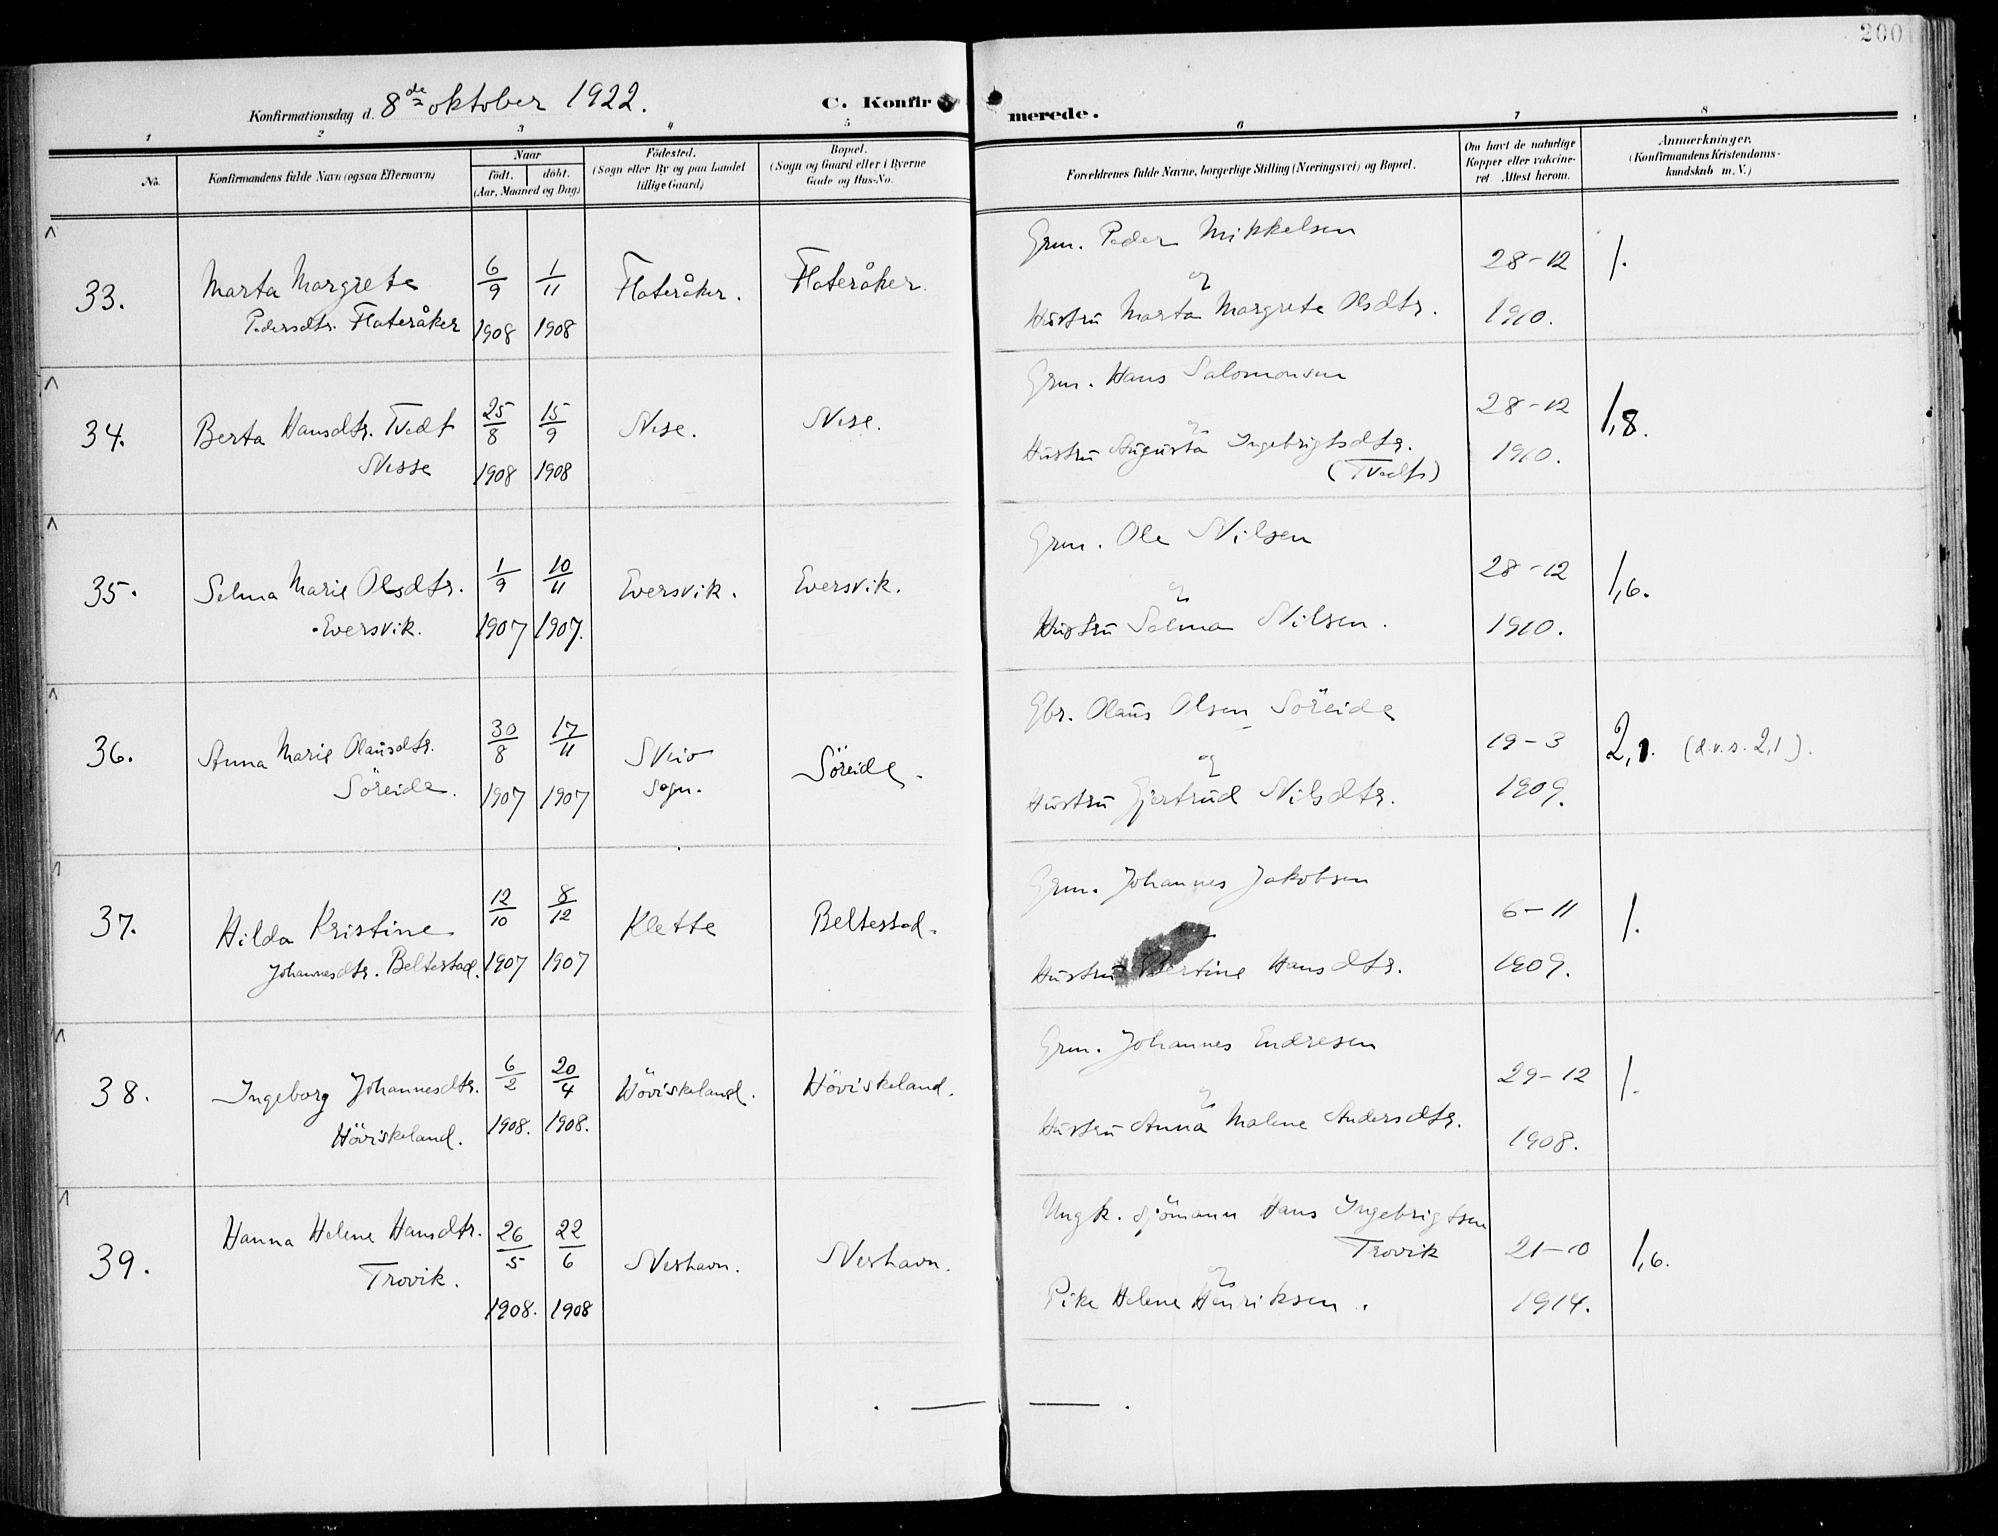 200
Konfirmationsdag d. 8de oktober 1922.
C. Konfirmerede.
1 2 3 4 5 6 7 8
No.
Konfirmandens fulde Navn (ogsaa Efternavn)
Naar
født. døbt.
(Aar, Maaned og Dag)
Fødested.
(Sogn eller By og paa Landet
tillige Gaard)
Bopæl.
(Sogn og Gaard eller i Byerne
Gade og Hus-No.
Forældrenes fulde Navne, borgerlige Stilling (Næringsvei) og Bopæl.
Om havt de naturlige
Kopper eller vakcine-
ret Attest herom.
Anmærkninger.
(Konfirmandens Kristendoms-
kundskab m. V.)
33.
Marta Margrete
Pedersdtr. Flateråker
6/9 1/11
1908 1908
Flateråker.
Flateråker.
Grm. Peder Mikkelsen
og
Hustru Marta Margrete Olsdtr.
28-12
1910.
1.
34.
Berta Hansdtr. Tvedt
Nesse
25/8 15/9
1908 1908
Nese.
Nese.
Grm. Hans Salomonsen
og
Hustru Augusta Ingebrigtsdtr.
(Tvedt)
28-12
1910.
1,8.
35.
Selma Marie Olsdtr.
Eversvik.
1/9 10/11
1907 1907.
Eversvik.
Eversvik.
Grm. Ole Nilsen
og
Hustru Selma Nilsen.
28-12
1910.
1,6.
36.
Anna Marie Olausdtr.
Söreide.
30/8 17/11
1907 1907
Sveio
Sogn.
Söreide.
Gbr. Olaus Olsen Söreide
og
Hustru Gjertrud Nilsdtr.
19-3
1909.
2,1. (d.v.s. 2,1).
37.
Hilda Kristine
Johannesdtr. Beltestad.
12/10 8/12
1907 1907
Klette
Beltestad.
Grm. Johannes Jakobsen
Hustru Bertine Hansdtr.
6-11
1909.
1.
38.
Ingeborg Johannesdtr.
Höviskeland.
6/2 20/4
1908. 1908.
Höviskeland.
Höviskeland.
Grm. Johannes Endresen
og
Hustru Anna Malene Andersdtr.
29-12
1908.
1.
39.
Hanna Helene Hansdtr.
Trovik.
26/5 22/6
1908. 1908
Neshavn.
Neshavn.
Ungk. sjömann Hans Ingebrigtsen
Trovik
og
Pike Helene Henriksen.
21-10
1914.
1,6.